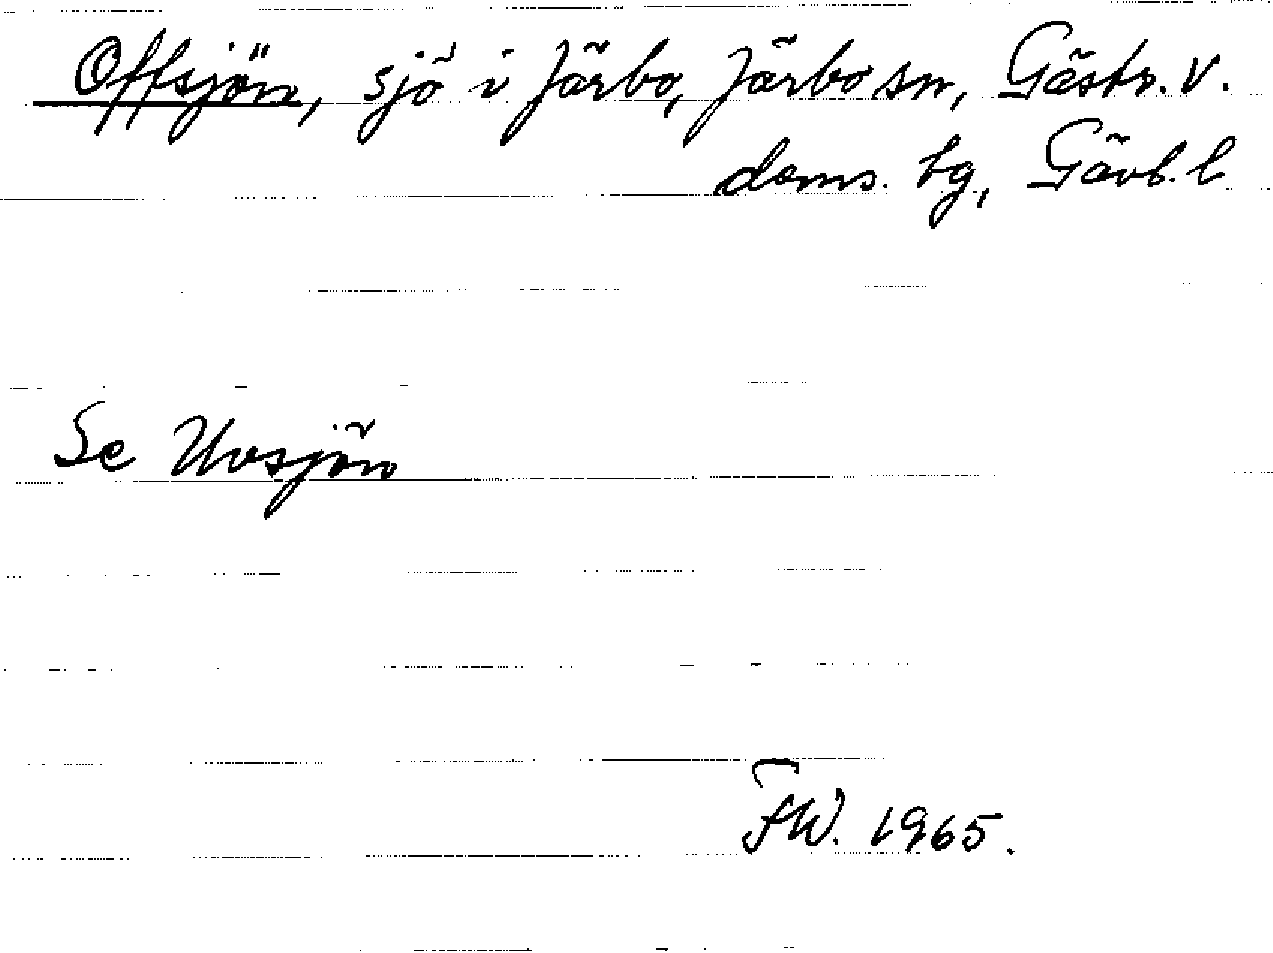 Offsjön, sjö i Järbo, Järbo sn, Gästr. V.
doms. hg, Gävl. l
Se Uvsjön
FW. 1965.